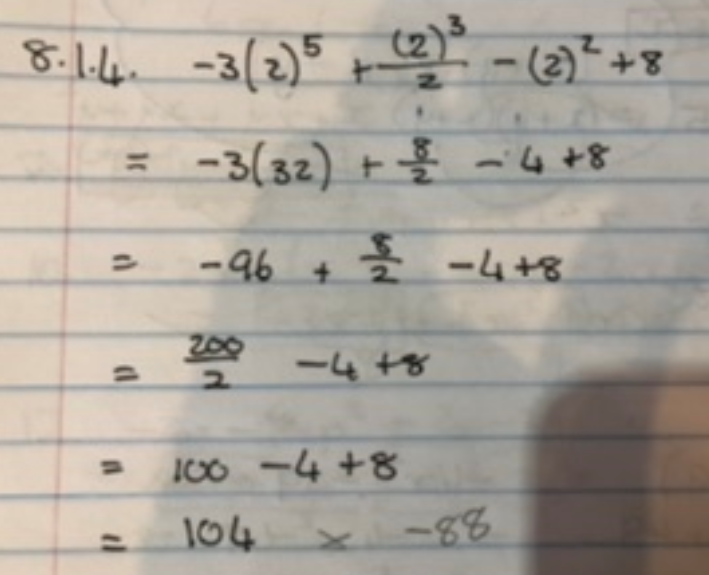 8.1.4. -3(2)⁵ + (2)³/2 - (2)² + 8
= -3(32) + 8/2 - 4 + 8
= -96 + 8/2 - 4 + 8
= 200/2 - 4 + 8
= 100 - 4 + 8
= 104 × -88